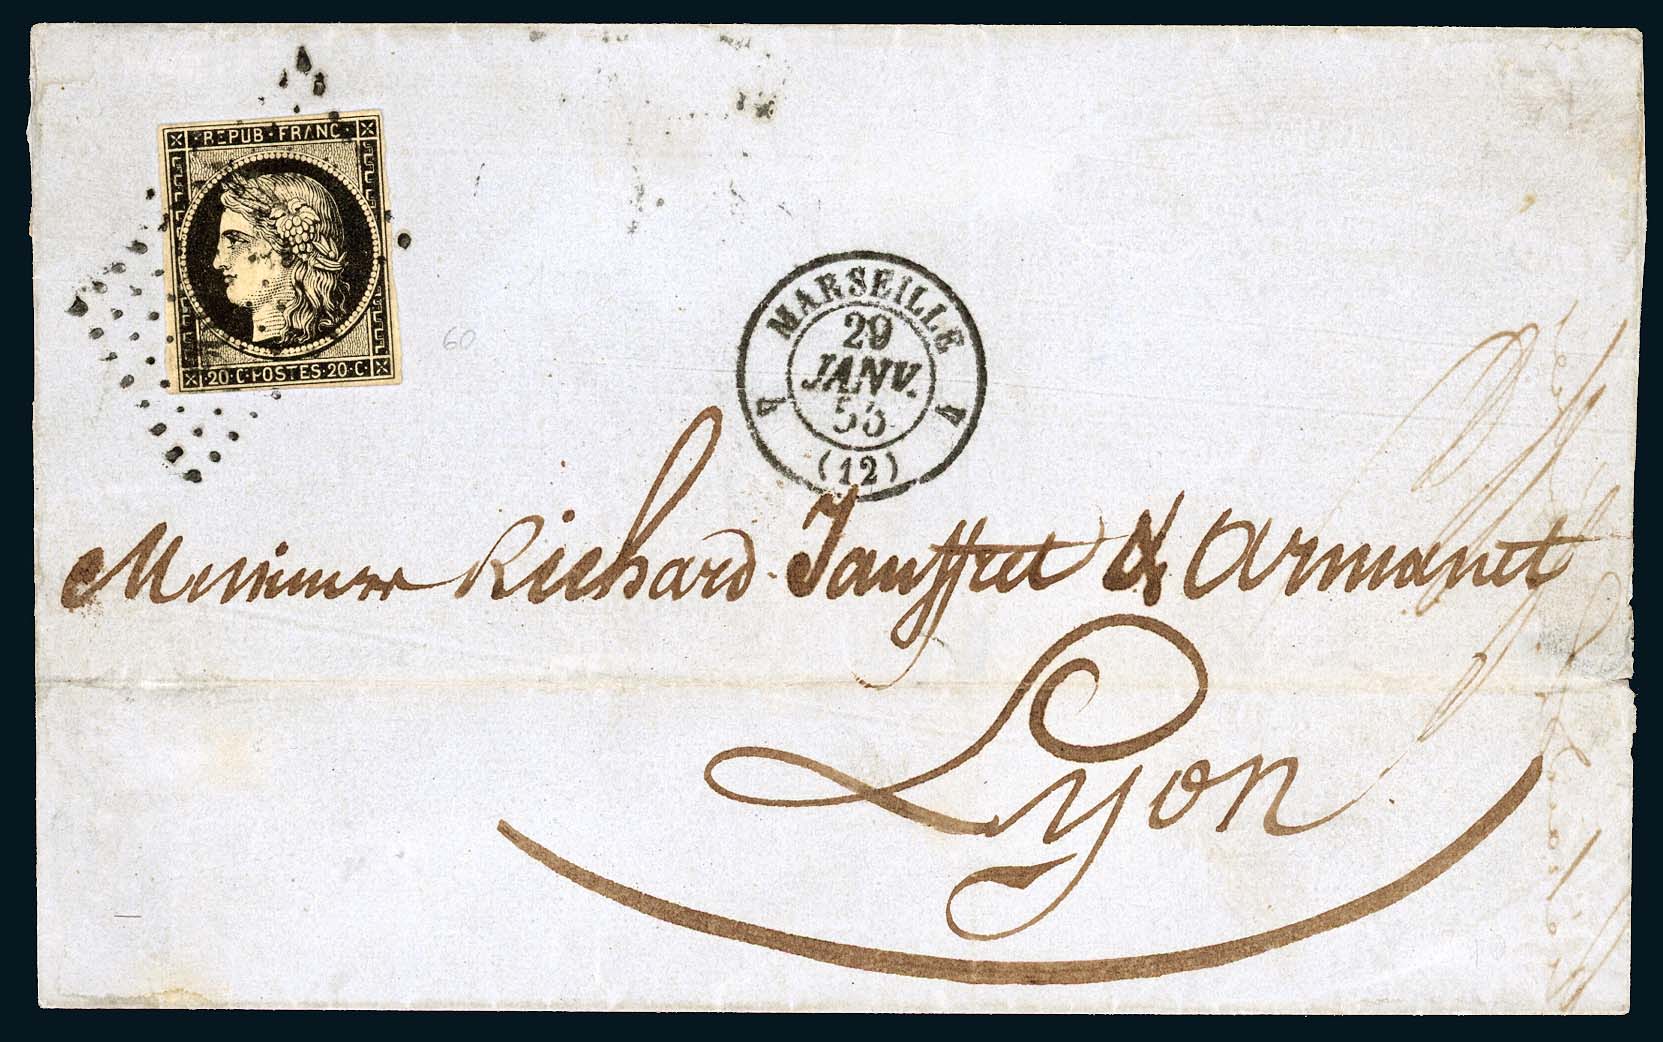 REPUB·FRANC·
20·C·POSTES·20·C·
60
MARSEILLE
29
JANV.
53
(12)
Messieurs Richard Jauffret & Armanet
Lyon